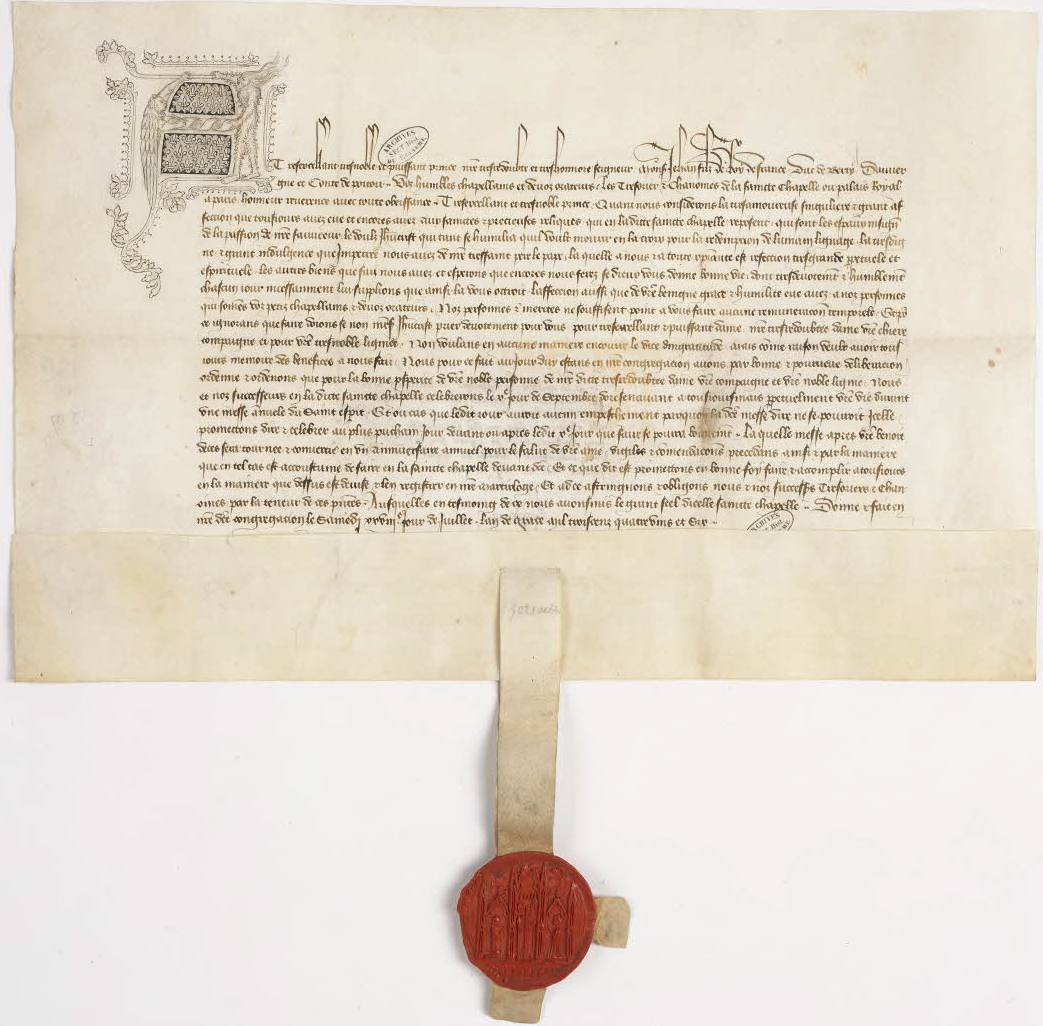 A Tresexcellant tresnoble et puissant prince nr̃e tresredoubte et treshonnore seigneur Mons̃. Jehan filz de Roy de france Duc de Berry Dauuer
gne et Conte de poitou - Voz humbles chappellains et deuoz orateurs les Tresorier & Chanoines de la saincte Chapelle ou palais Royal
a paris honneur reuerence auec toute obeissance - Tresexcellant et tresnoble prince Quant nous considerons la tresamoureuse singuliere & grant af
fection que tousiours auez eue et encores auez aux sainctes & precieuses reliques qui en la dicte saincte chapelle reposent qui sont les
de la passion de nr̃e sauueur le doulz Jhũcrist qui tant se humilia quil voult mourir en la croix pour la redempcion de lumain lignage la
ne & grant indulgence que Impetre nous auez de nr̃e tressaint pere le pape la quelle a nous & a toute est refection tresgrande perpetuele et
espirituele les autres biens que fait nous auez et esperons que encores nous ferez se dieux vous donne bonne vie dont tresdeuotement & humblemẽt
chascun iour incessamment lui supplions que ainsi la vous octroit Laffeccion aussi que de vr̃e benigne grace & humilite eue auez a noz personnes
qui som̃es voz petiz chappellains & deuoz orateurs Noz personnes & merites ne souffisent point a vous faire aucune remuneracion temporele
ce ignorans que faire doions se non nr̃e s̃ Jhũcrist prier deuotement pour vous pour tresexcellant & puissant dame nr̃e tresredoubtee dame vr̃e chiere
compaigne et pour vr̃e tresnoble lignee Non voulans en aucune maniere encourir le vice dingratitude mais com̃e raison veult auoir tous
iours memoire des benefices a nous faiz Nous pour ce fais au Jour duy estans en nr̃e congregacion auons par bonne & pourueue deliberacion
ordenne & ordenons que pour la bonne prosperite de vr̃e noble personne de nr̃e dicte tresredoubtee dame vr̃e compaigne et vr̃e noble ligne Nous
et noz successeurs en la dicte saincte chapelle celebrerons le vᵉ jour de Septembre doresenauant a tousiousmais perpetuelment vr̃e vie durant
vne messe anuele du Saint esperit Et ou cas que ledit iour auroit aucun empeschement par quoy la dc̃e messe dire ne se pourroit Icelle
promettons dire & celebrer au plus prochain Jour deuant ou apres ledit vᵉ Jour que faire se pourra bonnemẽt - La quelle messe apres vr̃e benoit
deces sera tournee & conuertie en vn anniuersaire annuel pour le salut de vr̃e ame vigiles & com̃endacions precedans ainsi & par la maniere
que en tel cas est accoustume de faire en la saincte chapelle deuant dc̃e Et ce que dit est promettons en bonne foy faire & acomplir a tousiours
en la maniere que dessus est deuise & len registrer en nr̃e marteloge Et ad ce astraignons & obligons nous & noz success̃s Tresoriers & Chan
oines par la teneur de ces p̃ntes Ausquelles en tesmoing de ce nous auons mis le grant seel dicelle saincte chapelle - Donne & fait en
nr̃e dc̃e congregacion le Samedi xxviiiᵉ Jour de Juillet lan de Grace mil troiscenz quatrevins et Six -
ARCHIVES
ARCHIVES